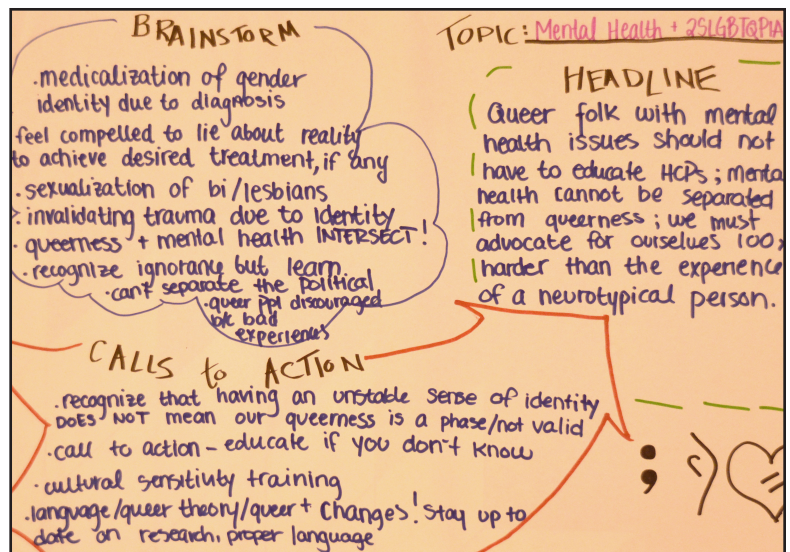 BRAINSTORM
.medicalization of gender
identity due to diagnosis
feel compelled to lie about reality
to achieve desired treatment, if any
.sexualization of bi/lesbians
.invalidating trauma due to identity
.queerness + mental health INTERSECT!
.recognize ignorance but learn
.can't separate the political
.queer ppl discouraged
b/c bad
experiences
TOPIC: Mental Health + 2SLGBTQPIA
HEADLINE
Queer folk with mental
health issues should not
have to educate HCPs; mental
health cannot be separated
from queerness; we must
advocate for ourselves 100x
harder than the experience
of a neurotypical person.
CALLS to ACTION
.recognize that having an unstable sense of identity
DOES NOT mean our queerness is a phase/not valid
.call to action - educate if you don't know
.cultural sensitivity training
.language/queer theory/queer + changes! Stay up to
date on research, proper language
;